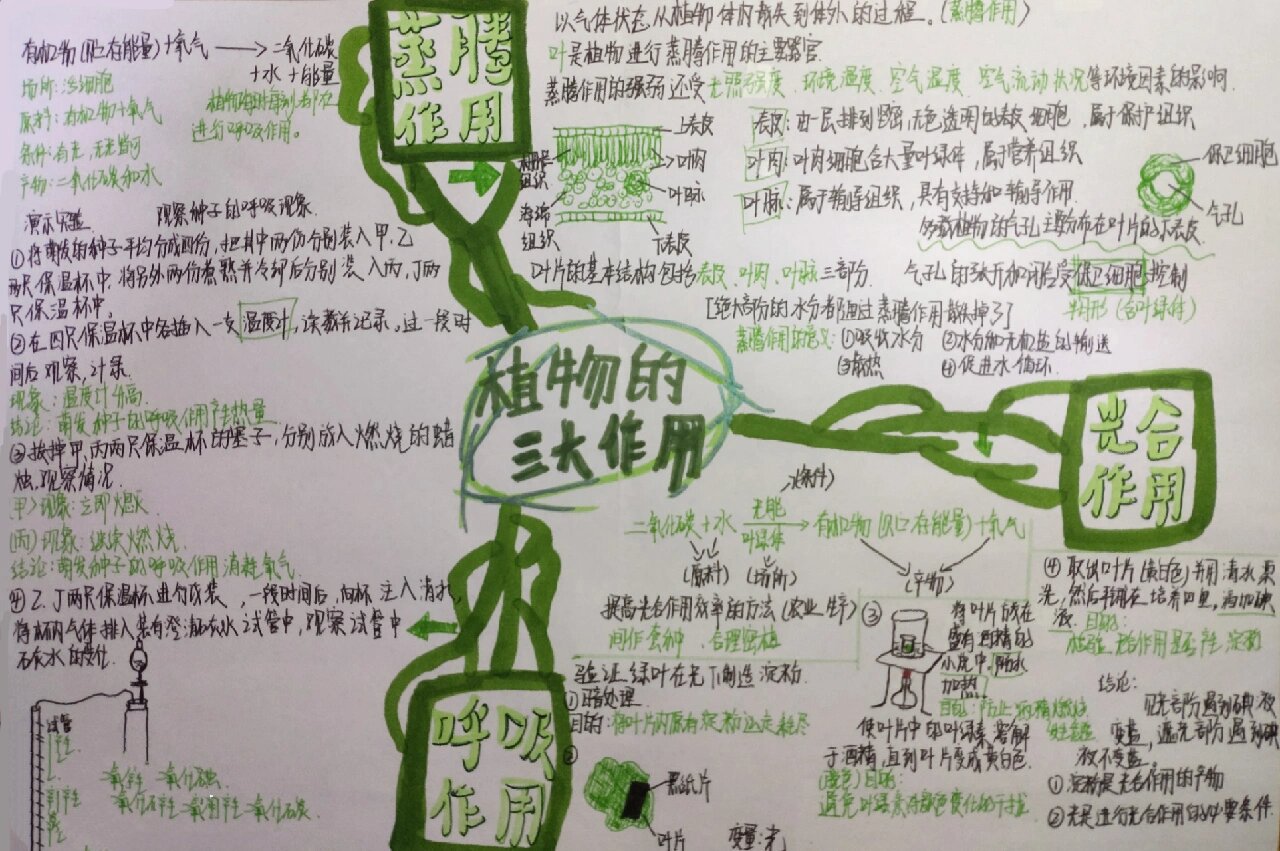 植物的
三大作用
蒸腾
作用
以气体状态从植物体内散失到体外的过程。(蒸腾作用)
叶是植物进行蒸腾作用的主要器官.
蒸腾作用的强弱还受光照强度、环境温度、空气湿度、空气流动状况等环境因素的影响.
上表皮
叶肉
叶脉
下表皮
组织
组织
表皮:由一层排列紧密,无色透明的表皮细胞,属于保护组织
叶肉:叶肉细胞含大量叶绿体,属于营养组织
叶脉:属于输导组织,具有支持和输导作用.
保卫细胞
气孔
多数植物的气孔主要分布在叶片的下表皮
叶片的基本结构包括表皮、叶肉、叶脉三部分.
气孔的张开和闭合受保卫细胞控制
半月形(含叶绿体)
[绝大部分的水分都通过蒸腾作用散失掉了]
蒸腾作用的意义:①吸收水分 ②水分和无机盐的输送
③散热 ④促进水循环.
光合
作用
(条件)
二氧化碳+水 光能 叶绿体 有机物(贮存能量)+氧气
(原料) (场所) (产物)
提高光合作用效率的方法(农业生产)
间作套种、合理密植
验证绿叶在光下制造淀粉.
①暗处理
目的:将叶片内原有淀粉运走耗尽
②
黑纸片
叶片
变量:光
③
将叶片放在
盛有酒精的
小烧杯中,隔水
加热
目的:防止酒精燃烧
使叶片中的叶绿素溶解
于酒精,直到叶片变成黄白色.
目的:
避免叶绿素对颜色变化的干扰
④取出叶片(黄白色)并用清水漂
洗,然后平铺在培养皿里,滴加碘
液.目的:
检验光合作用是否产生淀粉
结论:
见光部分遇到碘液
变蓝,遮光部分遇到碘
液不变蓝.
①淀粉是光合作用的产物
②光是进行光合作用的必要条件.
呼吸
作用
有机物(贮存能量)+氧气 → 二氧化碳
+水+能量
场所:活细胞
原料:有机物+氧气
条件:有光,无光皆可
产物:二氧化碳和水
植物随时每刻都在
进行呼吸作用。
演示实验 观察种子的呼吸现象.
①将萌发的种子平均分成四份,把其中两份分别装入甲、乙
两只保温杯中.将另外两份煮熟并冷却后分别装入丙、丁两
只保温杯中.
②在四只保温杯中各插入一支温度计,读数并记录.过一段时
间后观察,计录.
现象:温度计升高.
结论:萌发种子的呼吸作用产生热量
③拔掉甲、丙两只保温杯的塞子,分别放入燃烧的蜡
烛,观察情况.
(甲)现象:立即熄灭.
(丙)现象:继续燃烧.
结论:萌发种子的呼吸作用消耗氧气
④乙、丁两只保温杯进行改装,一段时间后,向杯注入清水,
将杯内气体排入装有澄清石灰水试管中,观察试管中
石灰水的变化.
试管